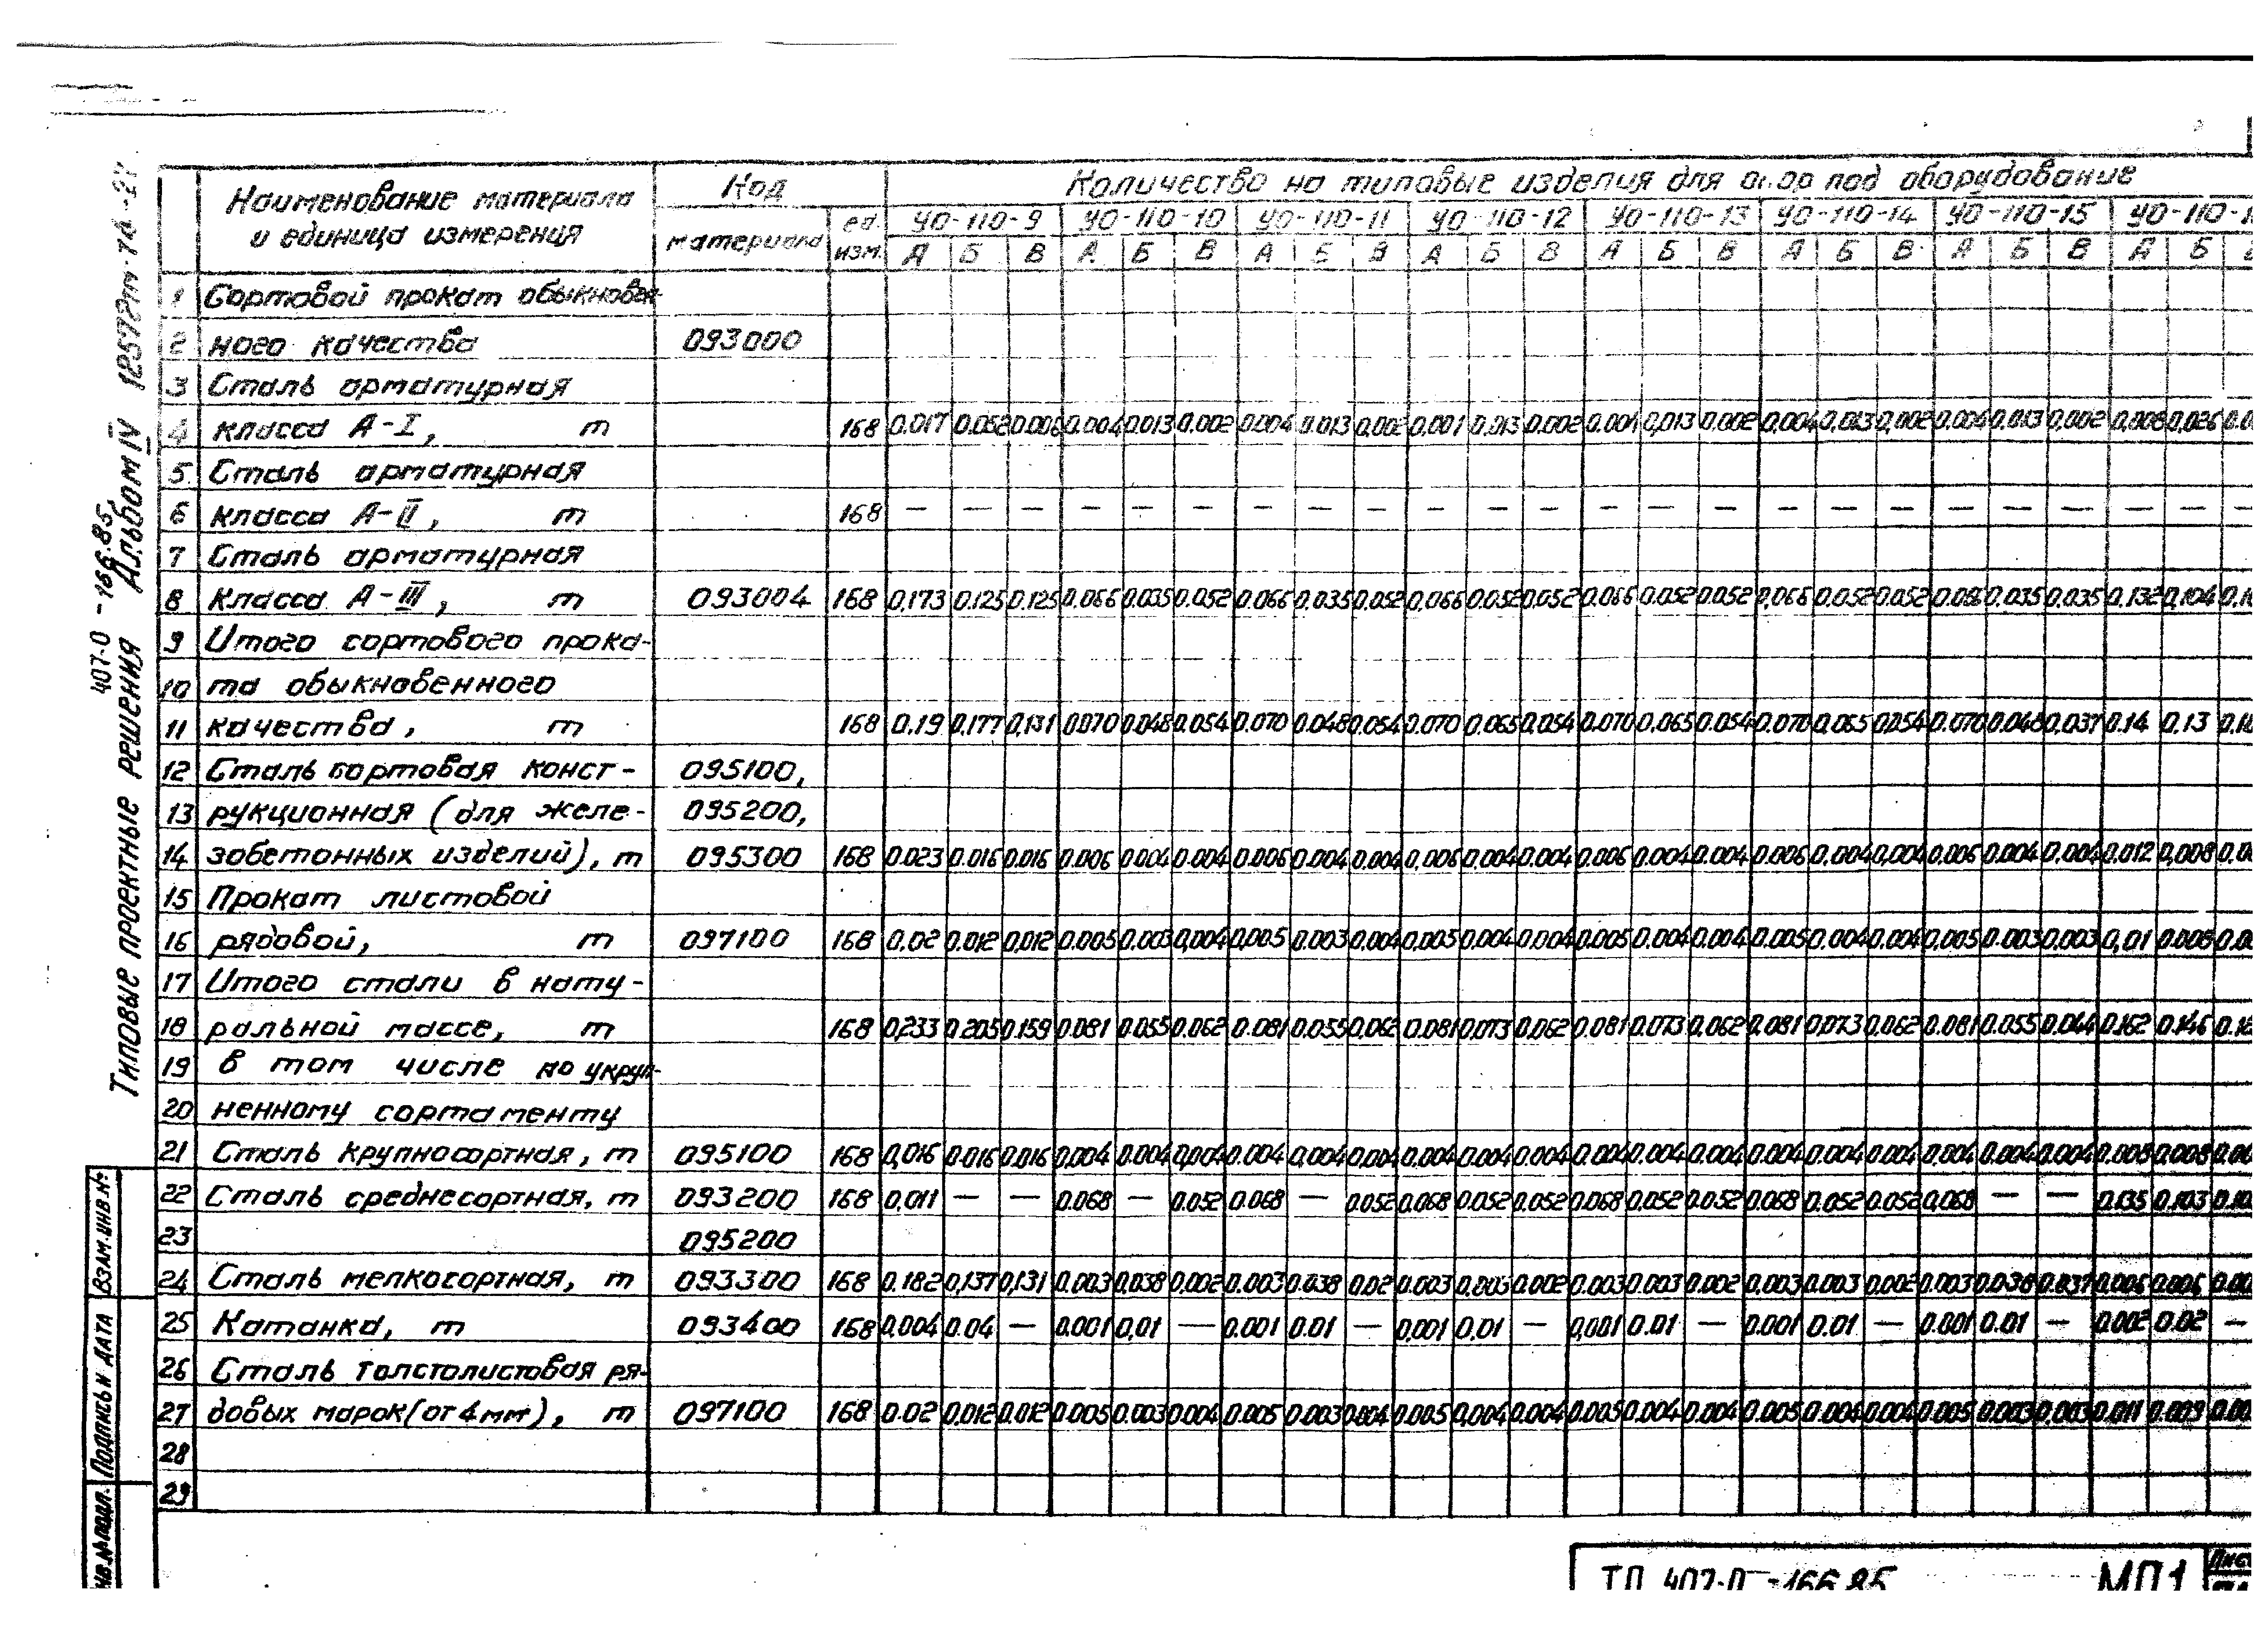 Типовые проектные решения 407-0-166.85, Альбом IV 12572тм-т4-
Наименование материала и единица измерения Код Количество на типовые изделия для опор под оборудование
материала ед. изм. УО-110-9 УО-110-10 УО-110-11 УО-110-12 УО-110-13 УО-110-14 УО-110-15 УО-110-1
А Б В А Б В А Б В А Б В А Б В А Б В А Б В А Б
1 Сортовой прокат обыкновен-
2 ного качества 093000
3 Сталь арматурная
4 класса А-I, т 168 0.017 0.052 0.006 0.004 0.013 0.002 0.004 0.013 0.002 0.001 0.013 0.002 0.004 0,013 0.002 0,004 0,013 0,002 0.004 0.013 0,002 0,008 0,026 0.0
5 Сталь арматурная
6 класса А-II, т 168 — — — — — — — — — — — — — — — — — — — — — — — —
7 Сталь арматурная
8 класса А-III, т 093004 168 0.173 0.125 0.125 0.066 0.035 0.052 0.066 0.035 0.052 0.066 0.052 0.052 0.066 0.052 0.052 0,066 0.052 0.052 0.066 0.035 0.035 0.132 0,104 0.10
9 Итого сортового прока-
10 та обыкновенного
11 качества, т 168 0.19 0.177 0,131 0.070 0.048 0.054 0.070 0.048 0.054 0.070 0.065 0.054 0.070 0,065 0.054 0.070 0,065 0.054 0.070 0.048 0.037 0.14 0.13 0.10
12 Сталь сортовая конст- 095100,
13 рукционная (для желе- 095200,
14 зобетонных изделий), т 095300 168 0.023 0.016 0.016 0.006 0.004 0.004 0.006 0.004 0.004 0,006 0.004 0.004 0.006 0.004 0.004 0.006 0.004 0,004 0.006 0.004 0.004 0.012 0,008 0.00
15 Прокат листовой
16 рядовой, т 097100 168 0.02 0.012 0,012 0.005 0.003 0,004 0,005 0.003 0.004 0.005 0.004 0.004 0.005 0.004 0.004 0.005 0.004 0.004 0,005 0.003 0,003 0,01 0.008 0.00
17 Итого стали в нату-
18 ральной массе, т 168 0,233 0.205 0.159 0.081 0.055 0.062 0.081 0.055 0,062 0.081 0,073 0.062 0.081 0.073 0.062 0.081 0.073 0.062 0.081 0.055 0.044 0.162 0.146 0.12
19 в том числе по укруп-
20 ненному сортаменту
21 Сталь крупносортная, т 095100 168 0,016 0.016 0.016 0.004 0.004 0,004 0.004 0,004 0.004 0.004 0.004 0.004 0.004 0.004 0.004 0.004 0.004 0.004 0,004 0.004 0.004 0.008 0,008 0.00
22 Сталь среднесортная, т 093200 168 0,011 — — 0.068 — 0.052 0.068 — 0.052 0.068 0.052 0.052 0.068 0.052 0.052 0.068 0.052 0.052 0,068 — — 0.135 0.103 0.10
23 095200
24 Сталь мелкосортная, т 093300 168 0.182 0,137 0,131 0.003 0,038 0,002 0.003 0.038 0.02 0.003 0.003 0.002 0.003 0.003 0.002 0.003 0.003 0.002 0.003 0.038 0.037 0,006 0.006 0.00
25 Катанка, т 093400 168 0.004 0.04 — 0.001 0,01 — 0.001 0.01 — 0,001 0,01 — 0,001 0.01 — 0.001 0.01 — 0.001 0.01 — 0.002 0.02 —
26 Сталь толстолистовая ря-
27 довых марок (от 4 мм), т 097100 168 0.02 0,012 0.012 0.005 0.003 0.004 0.005 0.003 0.004 0.005 0,004 0.004 0.005 0.004 0.004 0.005 0.004 0.004 0.005 0.003 0,003 0.011 0.009 0.00
28
29
Взам.инв.№
Подпись и дата
нв.№подл.
ТП 407-0-166.85 МП1 Лис